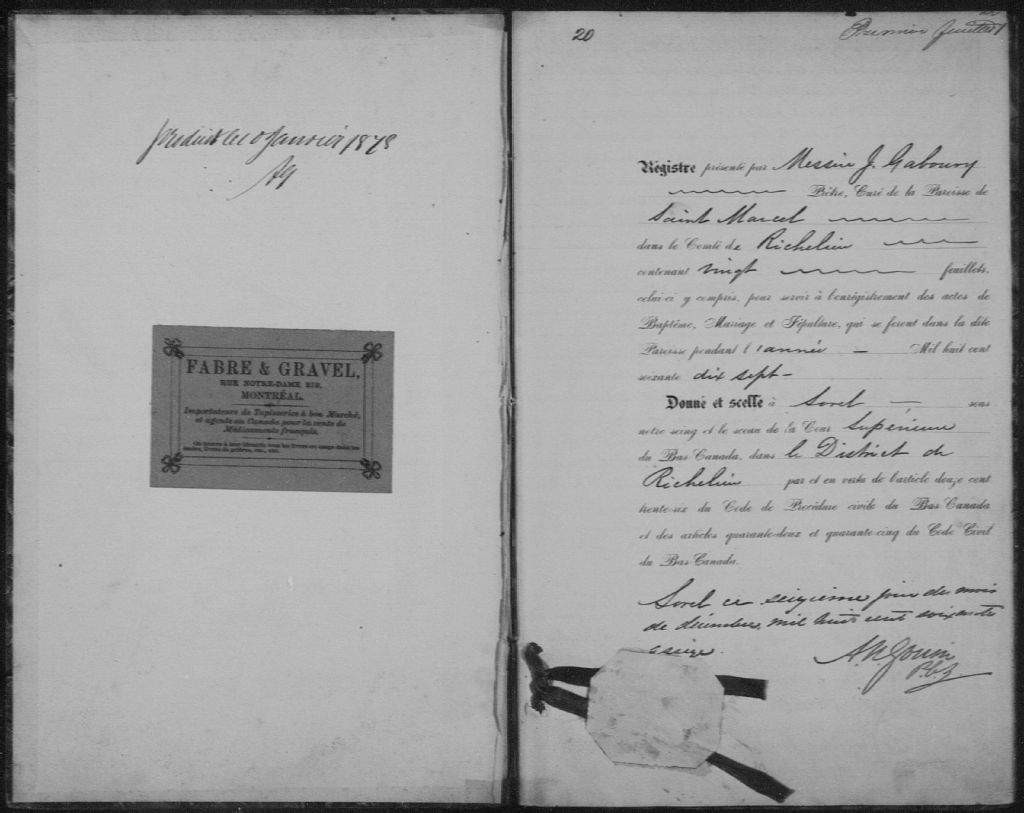 produit le 10 Janvier 1878
AG
FABRE & GRAVEL,
RUE NOTRE-DAME 219,
MONTRÉAL.
Importateurs de Tapisseries à bon Marché,
et agents au Canada pour la vente de
Médicaments français.
On trouve à leur librairie tous les livres en usage dans les
écoles, livres de prières, etc., etc.
20
Premier feuillet
Régistre présenté par Messire J. Gaboury
Prêtre, Curé de la Paroisse de
Saint Marcel
dans le Comté de Richelieu
contenant vingt feuillets,
celui-ci y compris, pour servir à l'enrégistrement des actes de
Baptême, Mariage et Sépulture, qui se feront dans la dite
Paroisse pendant l'année — Mil huit cent
soixante dix sept —
Donné et scellé à Sorel — sous
notre seing et le sceau de la Cour Supérieure
du Bas-Canada, dans le District de
Richelieu par et en vertu de l'article douze cent
trente-six du Code de Procédure civile du Bas-Canada
et des articles quarante-deux et quarante-cinq du Code Civil
du Bas-Canada.
Sorel ce seizieme jour du mois
de décembre, mil huit cent soixante
& seize.
A. N. Gouin
P.C.S.